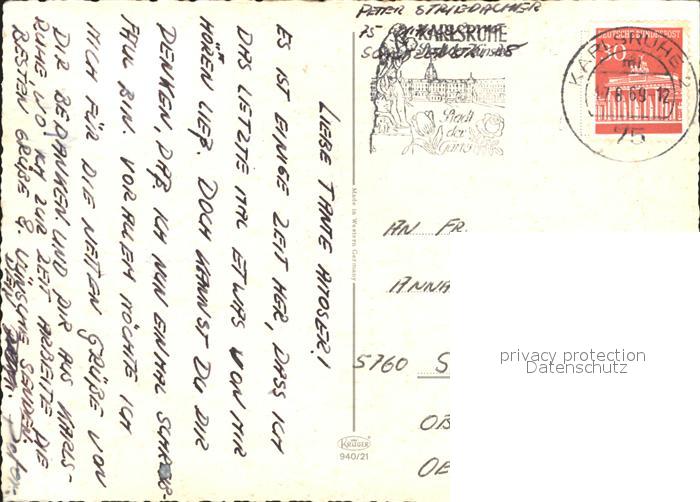 LIEBE TANTE
ES IST EINIGE ZEIT HER, DASS ICH
DAS LETZTE MAL ETWAS VON MIR
HÖREN LIEß. DOCH KANNST DU DIR
DENKEN, DAß ICH NUN EINMAL SCHREIB-
FAUL BIN. VOR ALLEM MÖCHTE ICH
MICH FÜR DIE NETTEN GRÜßE VON
DIR BEDANKEN UND DIR AUS KARLS-
RUHE, WO ICH ZUR ZEIT ARBEITE DIE
BESTEN GRÜßE & WÜNSCHE SENDEN.
DEIN
Peter
PETER
75
KARLSRUHE
Stadt
der
Gärten
DEUTSCHE BUNDESPOST
30
KARLSRUHE
17.8.69-12
75
Made in Western Germany
AN FR.
ANNA
5760 S
OB
OE
KRÜGER
940/21
privacy protection
Datenschutz